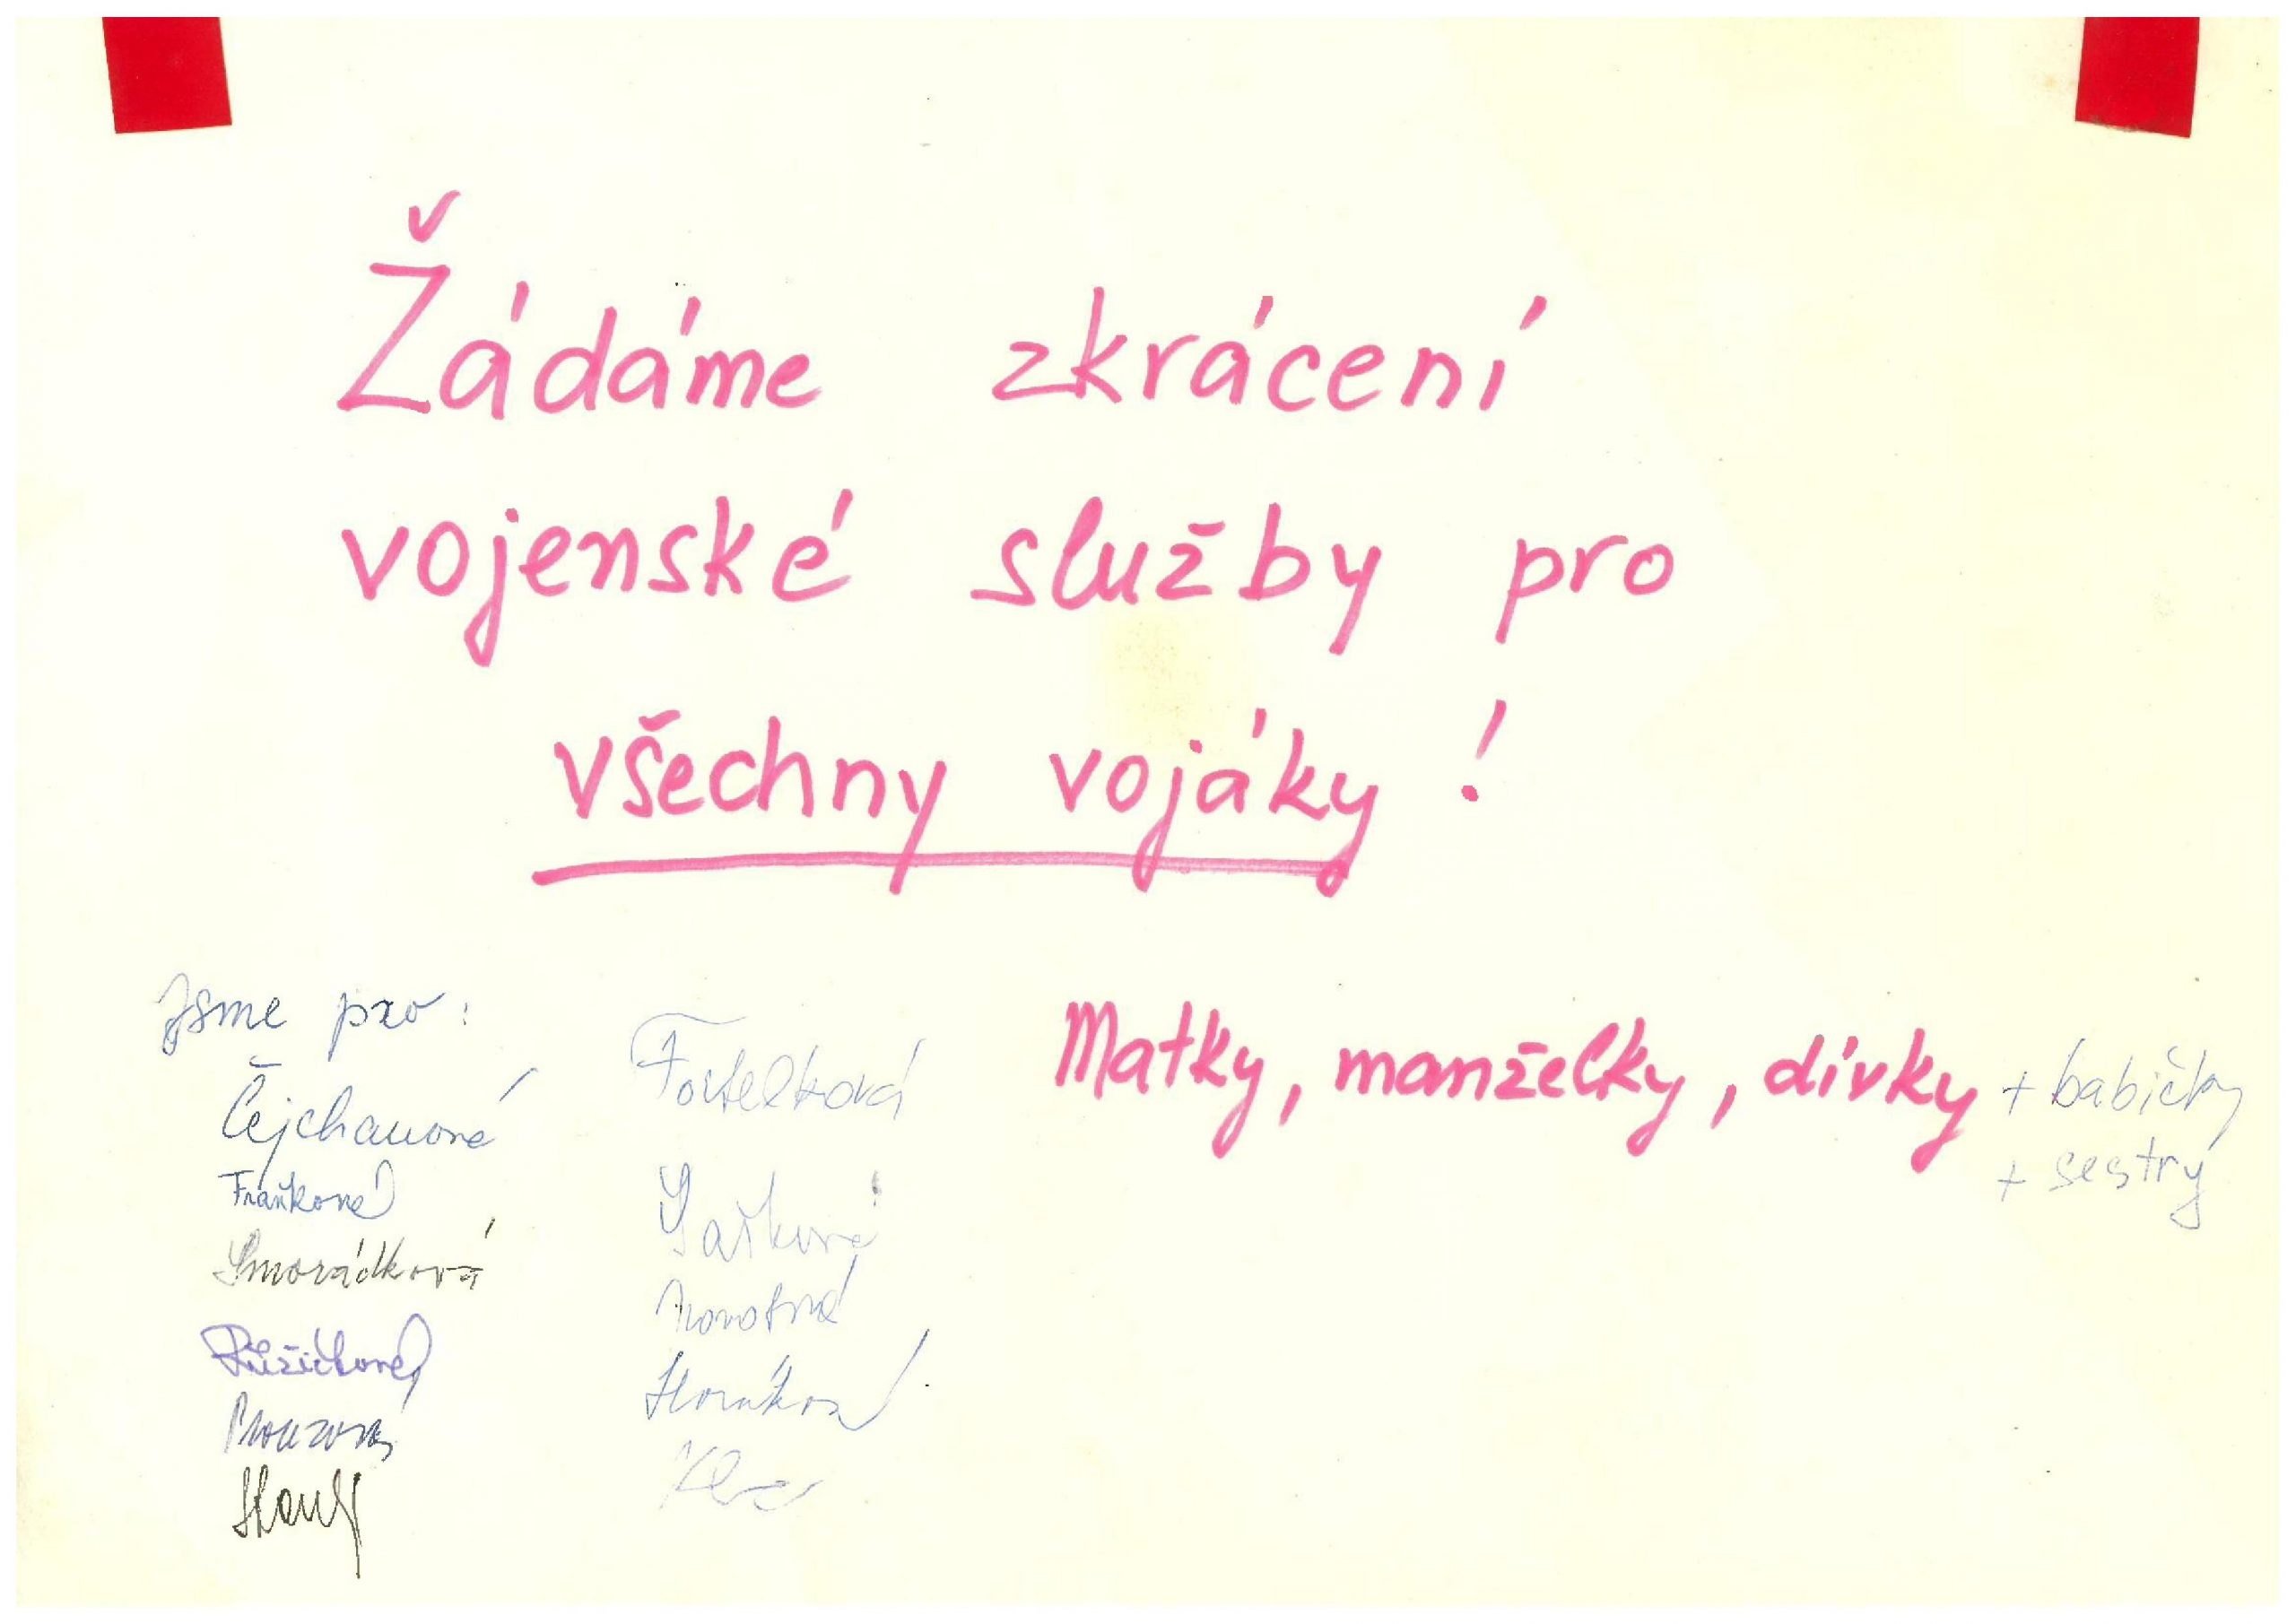 Žádáme zkrácení
vojenské služby pro
všechny vojáky!
Jsme pro:
Čejchanová
Fraňková
Smorádková
Růžičková
Fortelková
Šašková
Novotná
Matky, manželky, dívky + babičky
+ sestry